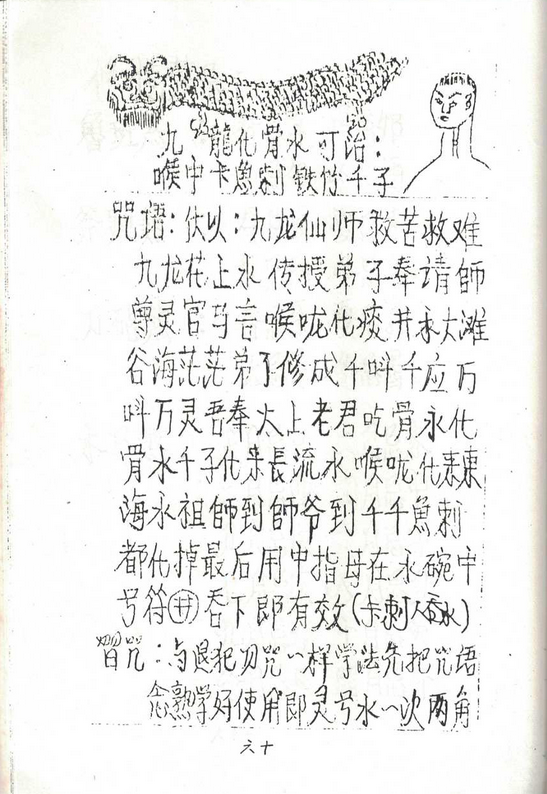 九龍化骨水可治:
喉中卡魚刺铁竹千子
咒語:伏以:九龙仙师救苦救难
九龙花上水传授弟子奉請師
尊灵官马言喉咙化痰井永大滩
谷海茫茫弟了修成千叫千应万
叫万灵吾奉太上老君吃骨永化
骨水千子化来長流永喉咙化来東
海永祖師到師爷到千千魚刺
都化掉最后用中指母在永碗中
号符㊉吞下即有效(卡刺人吞水)
習咒:与退犯刃咒一样学法先把咒语
念熟学好使用即灵号水一次两角
六十